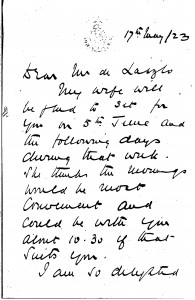 17th May/23
Dear Mr de László
My wife will
be glad to sit for
you on 5th June and
the following days
during that week.
She thinks the mornings
would be most
convenient and
could be with you
about 10.30 if that
suits you.
I am so delighted